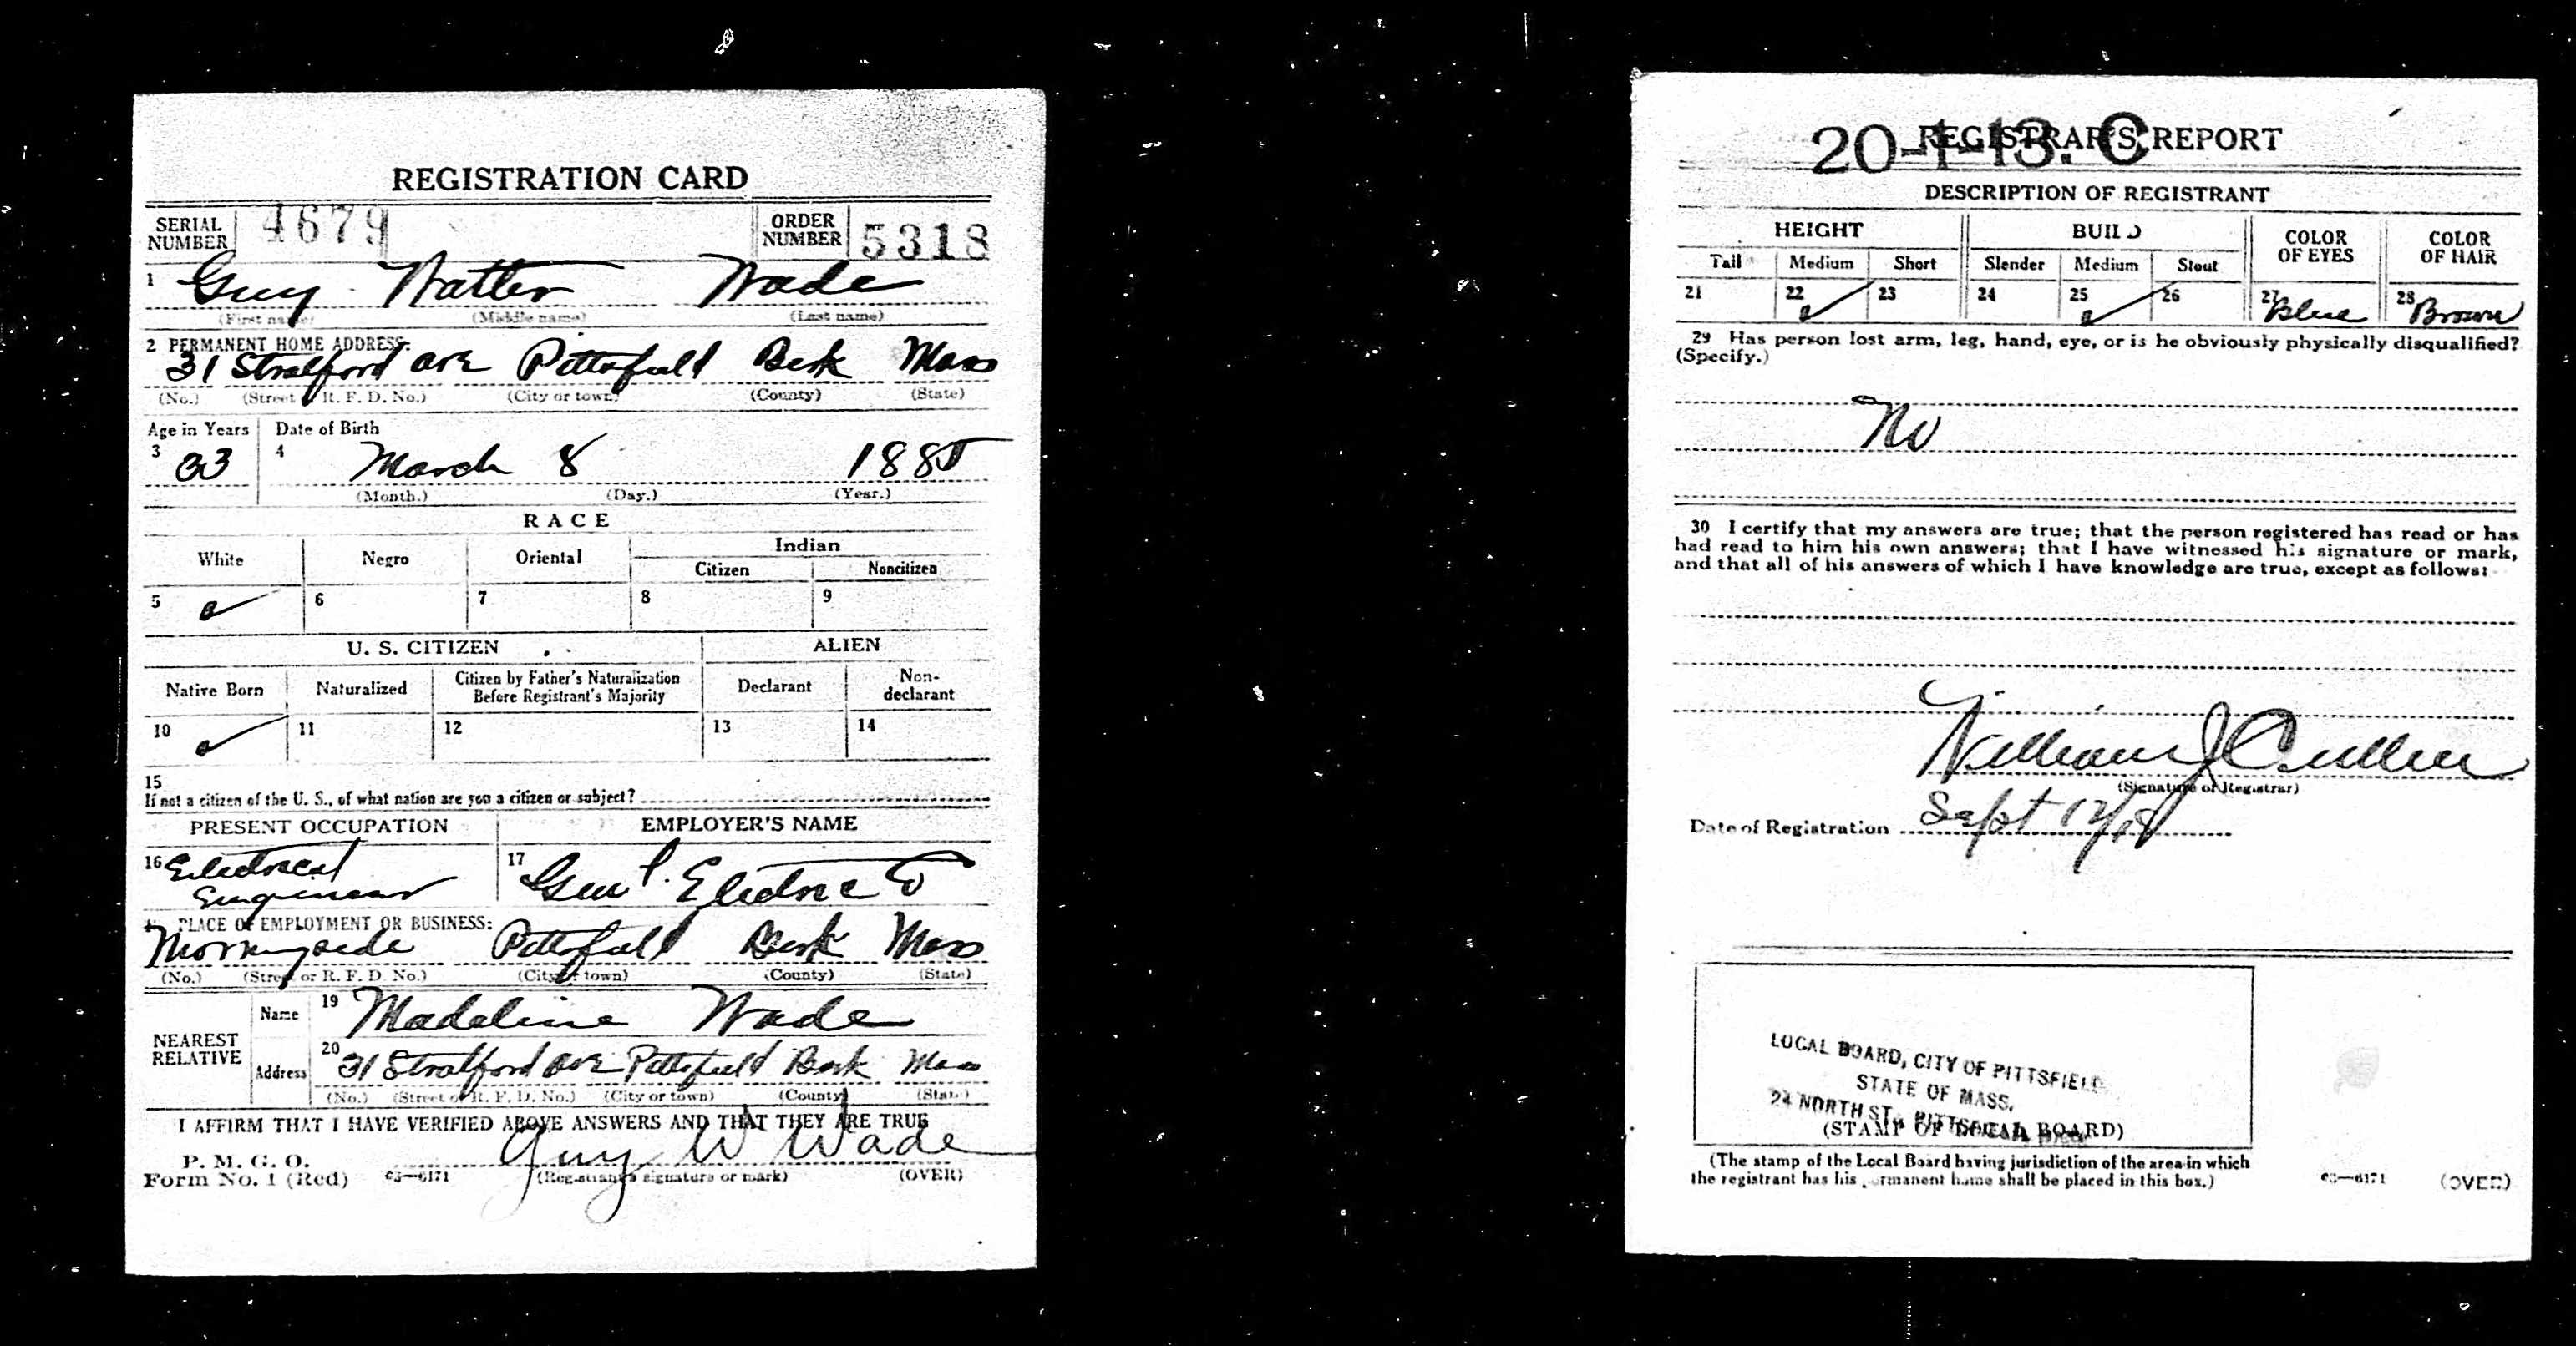 REGISTRATION CARD
SERIAL NUMBER 4679 ORDER NUMBER 5318
1 Guy Walter Wade
(First name) (Middle name) (Last name)
2 PERMANENT HOME ADDRESS:
31 Stratford ave Pittsfield Berk Mass
(No.) (Street or R. F. D. No.) (City or town) (County) (State)
Age in Years Date of Birth
3 33 4 March 8 1885
(Month.) (Day.) (Year.)
RACE
White Negro Oriental Indian
Citizen Noncitizen
5 6 7 8 9
U. S. CITIZEN ALIEN
Native Born Naturalized Citizen by Father's Naturalization Before Registrant's Majority Declarant Non-declarant
10 11 12 13 14
15
If not a citizen of the U. S., of what nation are you a citizen or subject?
PRESENT OCCUPATION EMPLOYER'S NAME
16 Electrical Engineer 17 Gen'l. Electric Co
PLACE OF EMPLOYMENT OR BUSINESS:
Morningside Pittsfield Berk Mass
(No.) (Street or R. F. D. No.) (City or town) (County) (State)
NEAREST RELATIVE Name 19 Madeline Wade
Address 20 31 Stratford ave Pittsfield Berk Mass
(No.) (Street or R. F. D. No.) (City or town) (County) (State)
I AFFIRM THAT I HAVE VERIFIED ABOVE ANSWERS AND THAT THEY ARE TRUE
Guy W Wade
P. M. G. O.
Form No. 1 (Red) 03—6171 (Registrant's signature or mark) (OVER)
REGISTRAR'S REPORT
20-1-13. C
DESCRIPTION OF REGISTRANT
HEIGHT BUILD COLOR OF EYES COLOR OF HAIR
Tall Medium Short Slender Medium Stout
21 22 23 24 25 26 27 Blue 28 Brown
29 Has person lost arm, leg, hand, eye, or is he obviously physically disqualified?
(Specify.)
No
30 I certify that my answers are true; that the person registered has read or has
had read to him his own answers; that I have witnessed his signature or mark,
and that all of his answers of which I have knowledge are true, except as follows:
William J Cullen
(Signature of Registrar)
Date of Registration Sept 12/18
LOCAL BOARD, CITY OF PITTSFIELD
STATE OF MASS.
24 NORTH ST., PITTSFIELD,
(STAMP OF LOCAL BOARD)
(The stamp of the Local Board having jurisdiction of the area in which
the registrant has his permanent home shall be placed in this box.)
03—6171 (OVER)